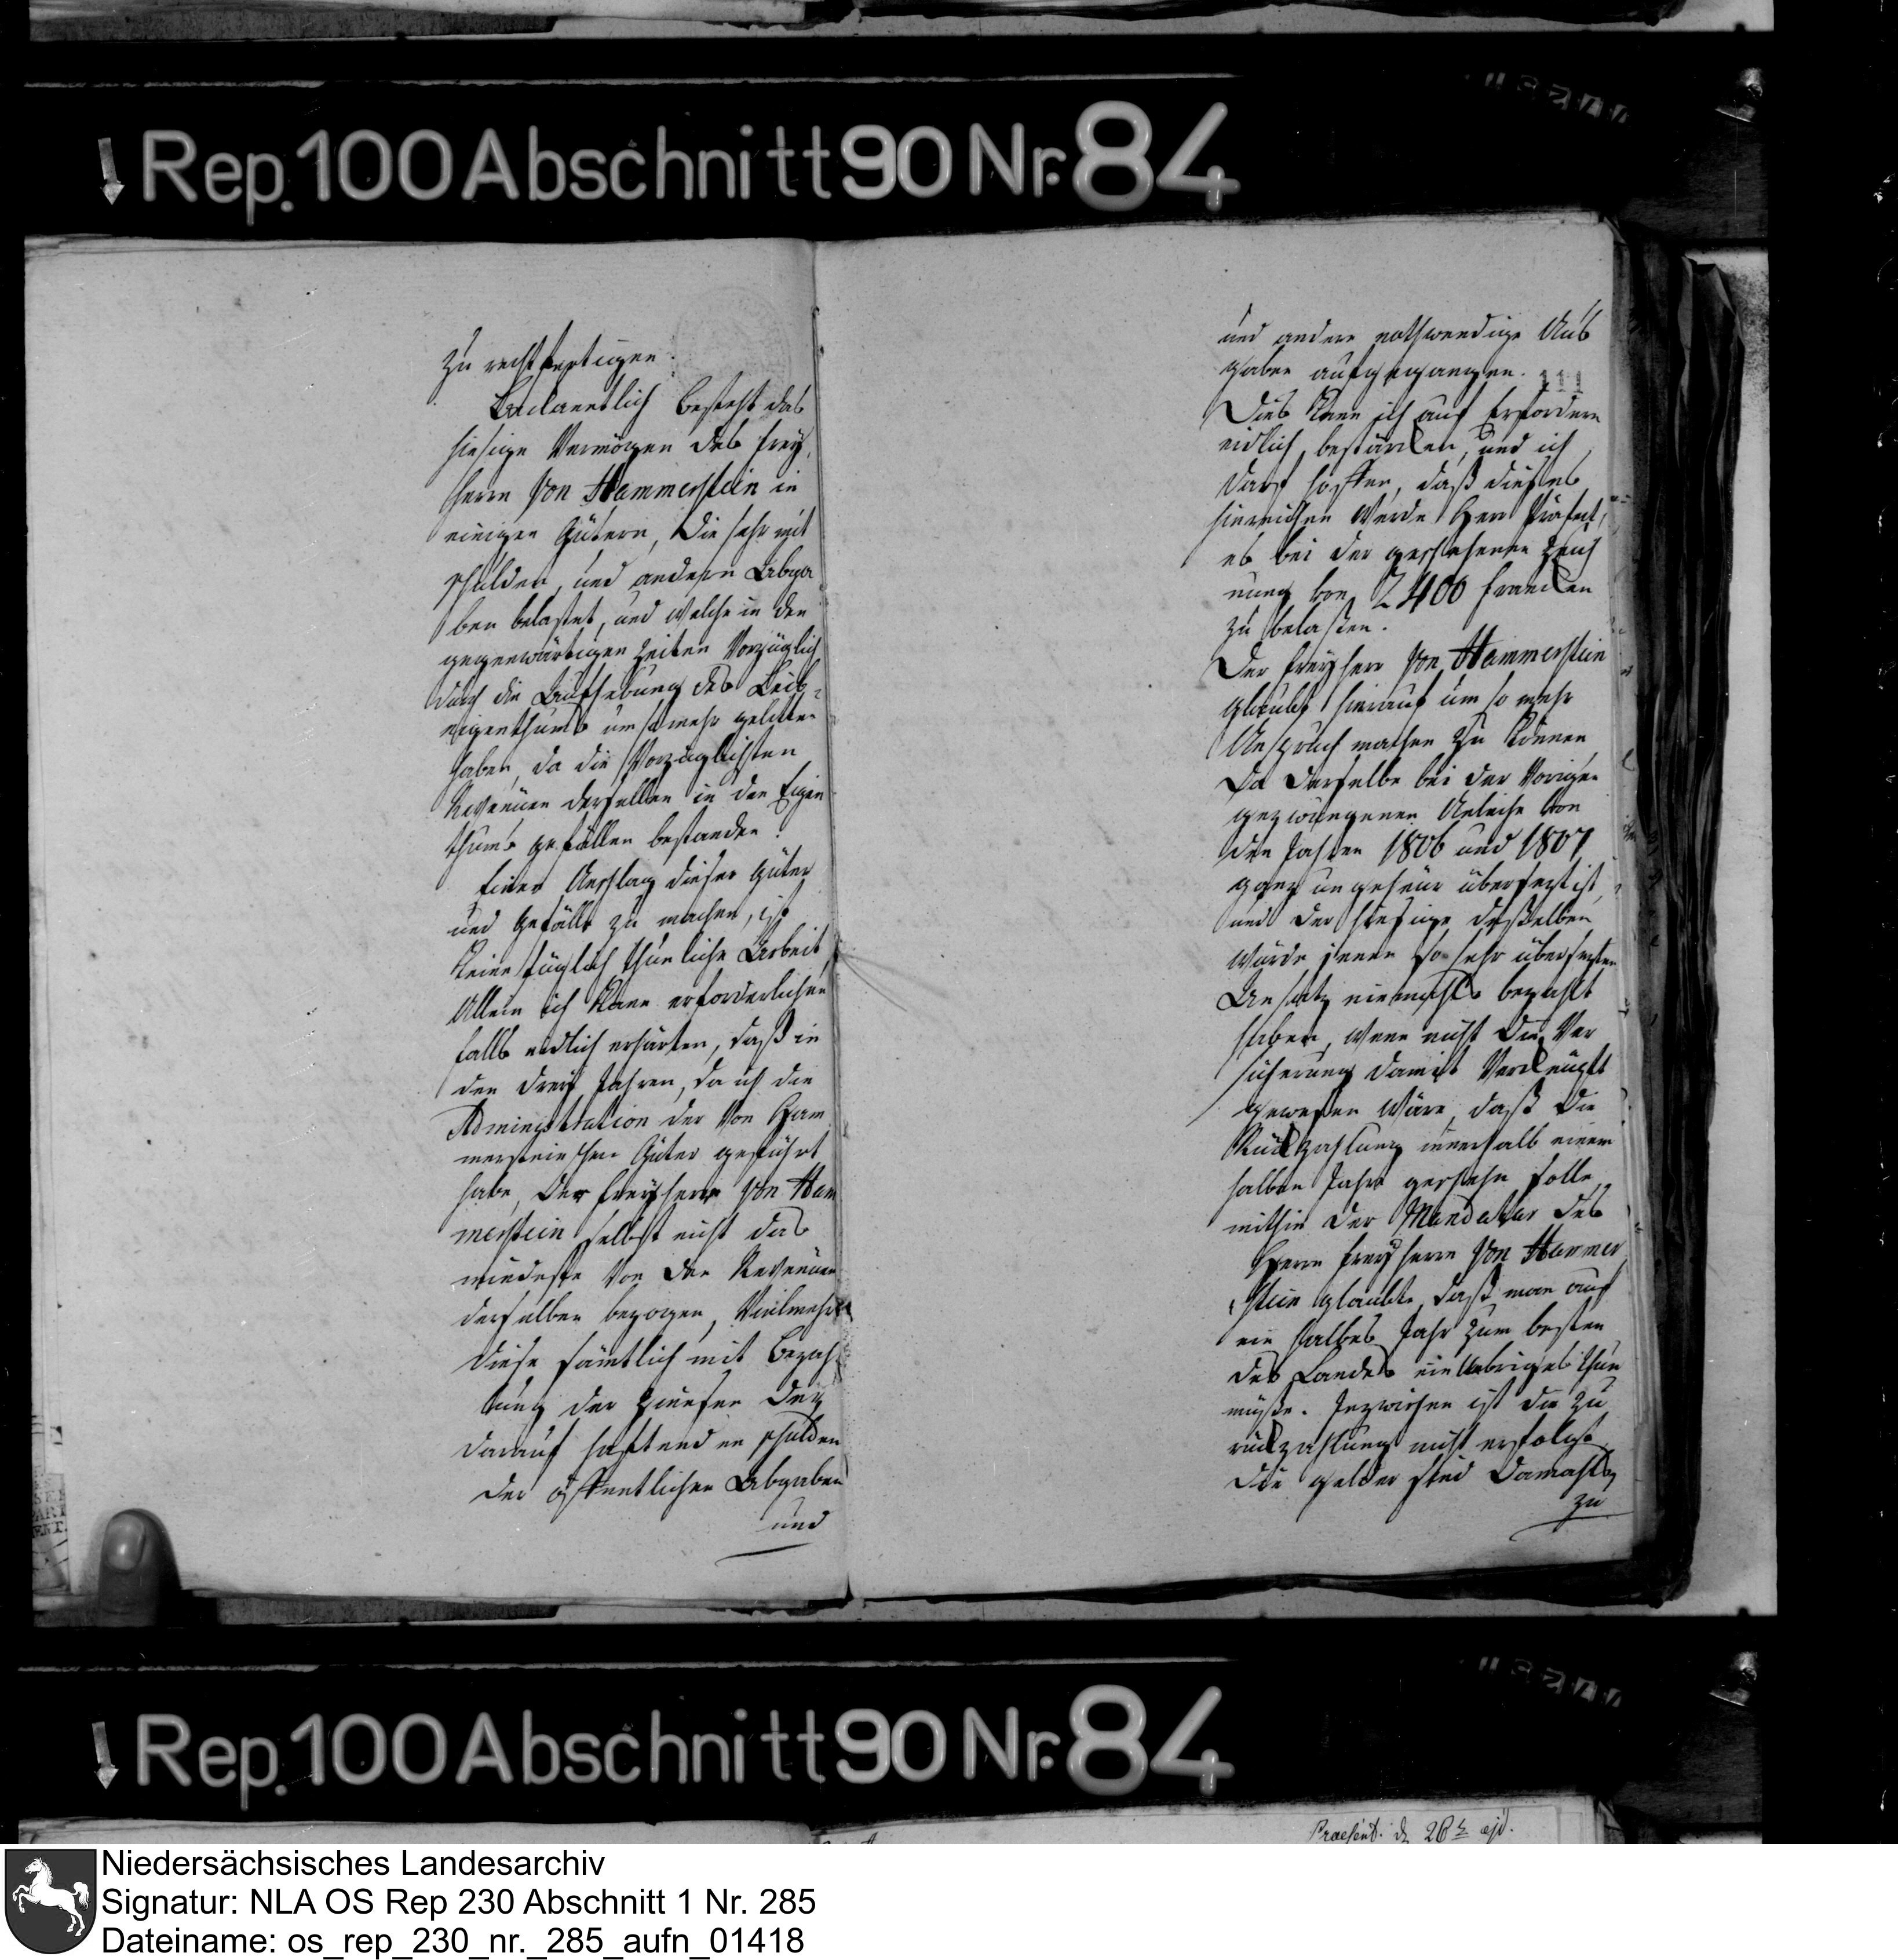 Rep. 100 Abschnitt 90 Nr. 84
zu rechtfertigen.
Bekanntlich besteht das
hiesige Vermögen des Frey
herrn von Hammerstein in
einigen Gütern, die sehr mit
Schulden, und andern Abga
ben belastet, und welche in den
gegenwärtigen Zeiten vorzüglich
durch die Aufhebung des Leib=
eigenthums um so mehr gelitten
haben, da die Vorzüglichsten
Revenüen derselben in den Eigen
thums gefällen bestanden.
Einen Anschlag dieser Güter
und Gefälle zu machen, ist
keine füglich thunliche Arbeit,
Allein ich kann erforderlichen
falls eidlich erhärten, daß in
den drey Jahren, da ich die
Administration der von Ham
mersteinschen Güter geführt
habe, der Freyherr von Ham
merstein selbst nicht das
mindeste von den Revenüen
derselben bezogen, Vielmehr
diese sämtlich mit Bezah
lung der Zinsen der
darauf haftenden Schulden
der öffentlichen Abgaben
und
und andere nothwendige Aus
gaben aufgegangen.
111
Dies kann ich auf Erfordern
eidlich bestärken, und ich
darf hoffen, daß dieses
hinreichen werde Herr Präfect,
es bei der geschehenen Zeich
nung von 2400 Francken
zu belaßen.
Der Freyherr von Hammerstein
glaubt hierauf um so mehr
Anspruch machen zu können
Da derselbe bei der Vorigen
gezwungenen Anleihe von
den Jahren 1806 und 1807
ganz ungeheuer übersezt ist,
und der hiesige desselben
würde jenen so sehr übersezten
Ansatz niemahls bezahlt
haben, wenn nicht die Ver
sicherung damit Verknüpft
gewesen wäre, daß die
Rückzahlung innerhalb einem
halben Jahre geschehn solle,
mithin der Mandatar des
Herrn Freyherrn von Hammer
stein glaubte, daß man auf
ein halbes Jahr zum besten
des Landes ein Uebriges thun
müße. Inzwischen ist die Zu
rückzahlung nicht erfolgt
die gelder sind damahls
zu
Rep. 100 Abschnitt 90 Nr. 84
Praesent. d. 26 ejd.
Niedersächsisches Landesarchiv
Signatur: NLA OS Rep 230 Abschnitt 1 Nr. 285
Dateiname: os_rep_230_nr._285_aufn_01418